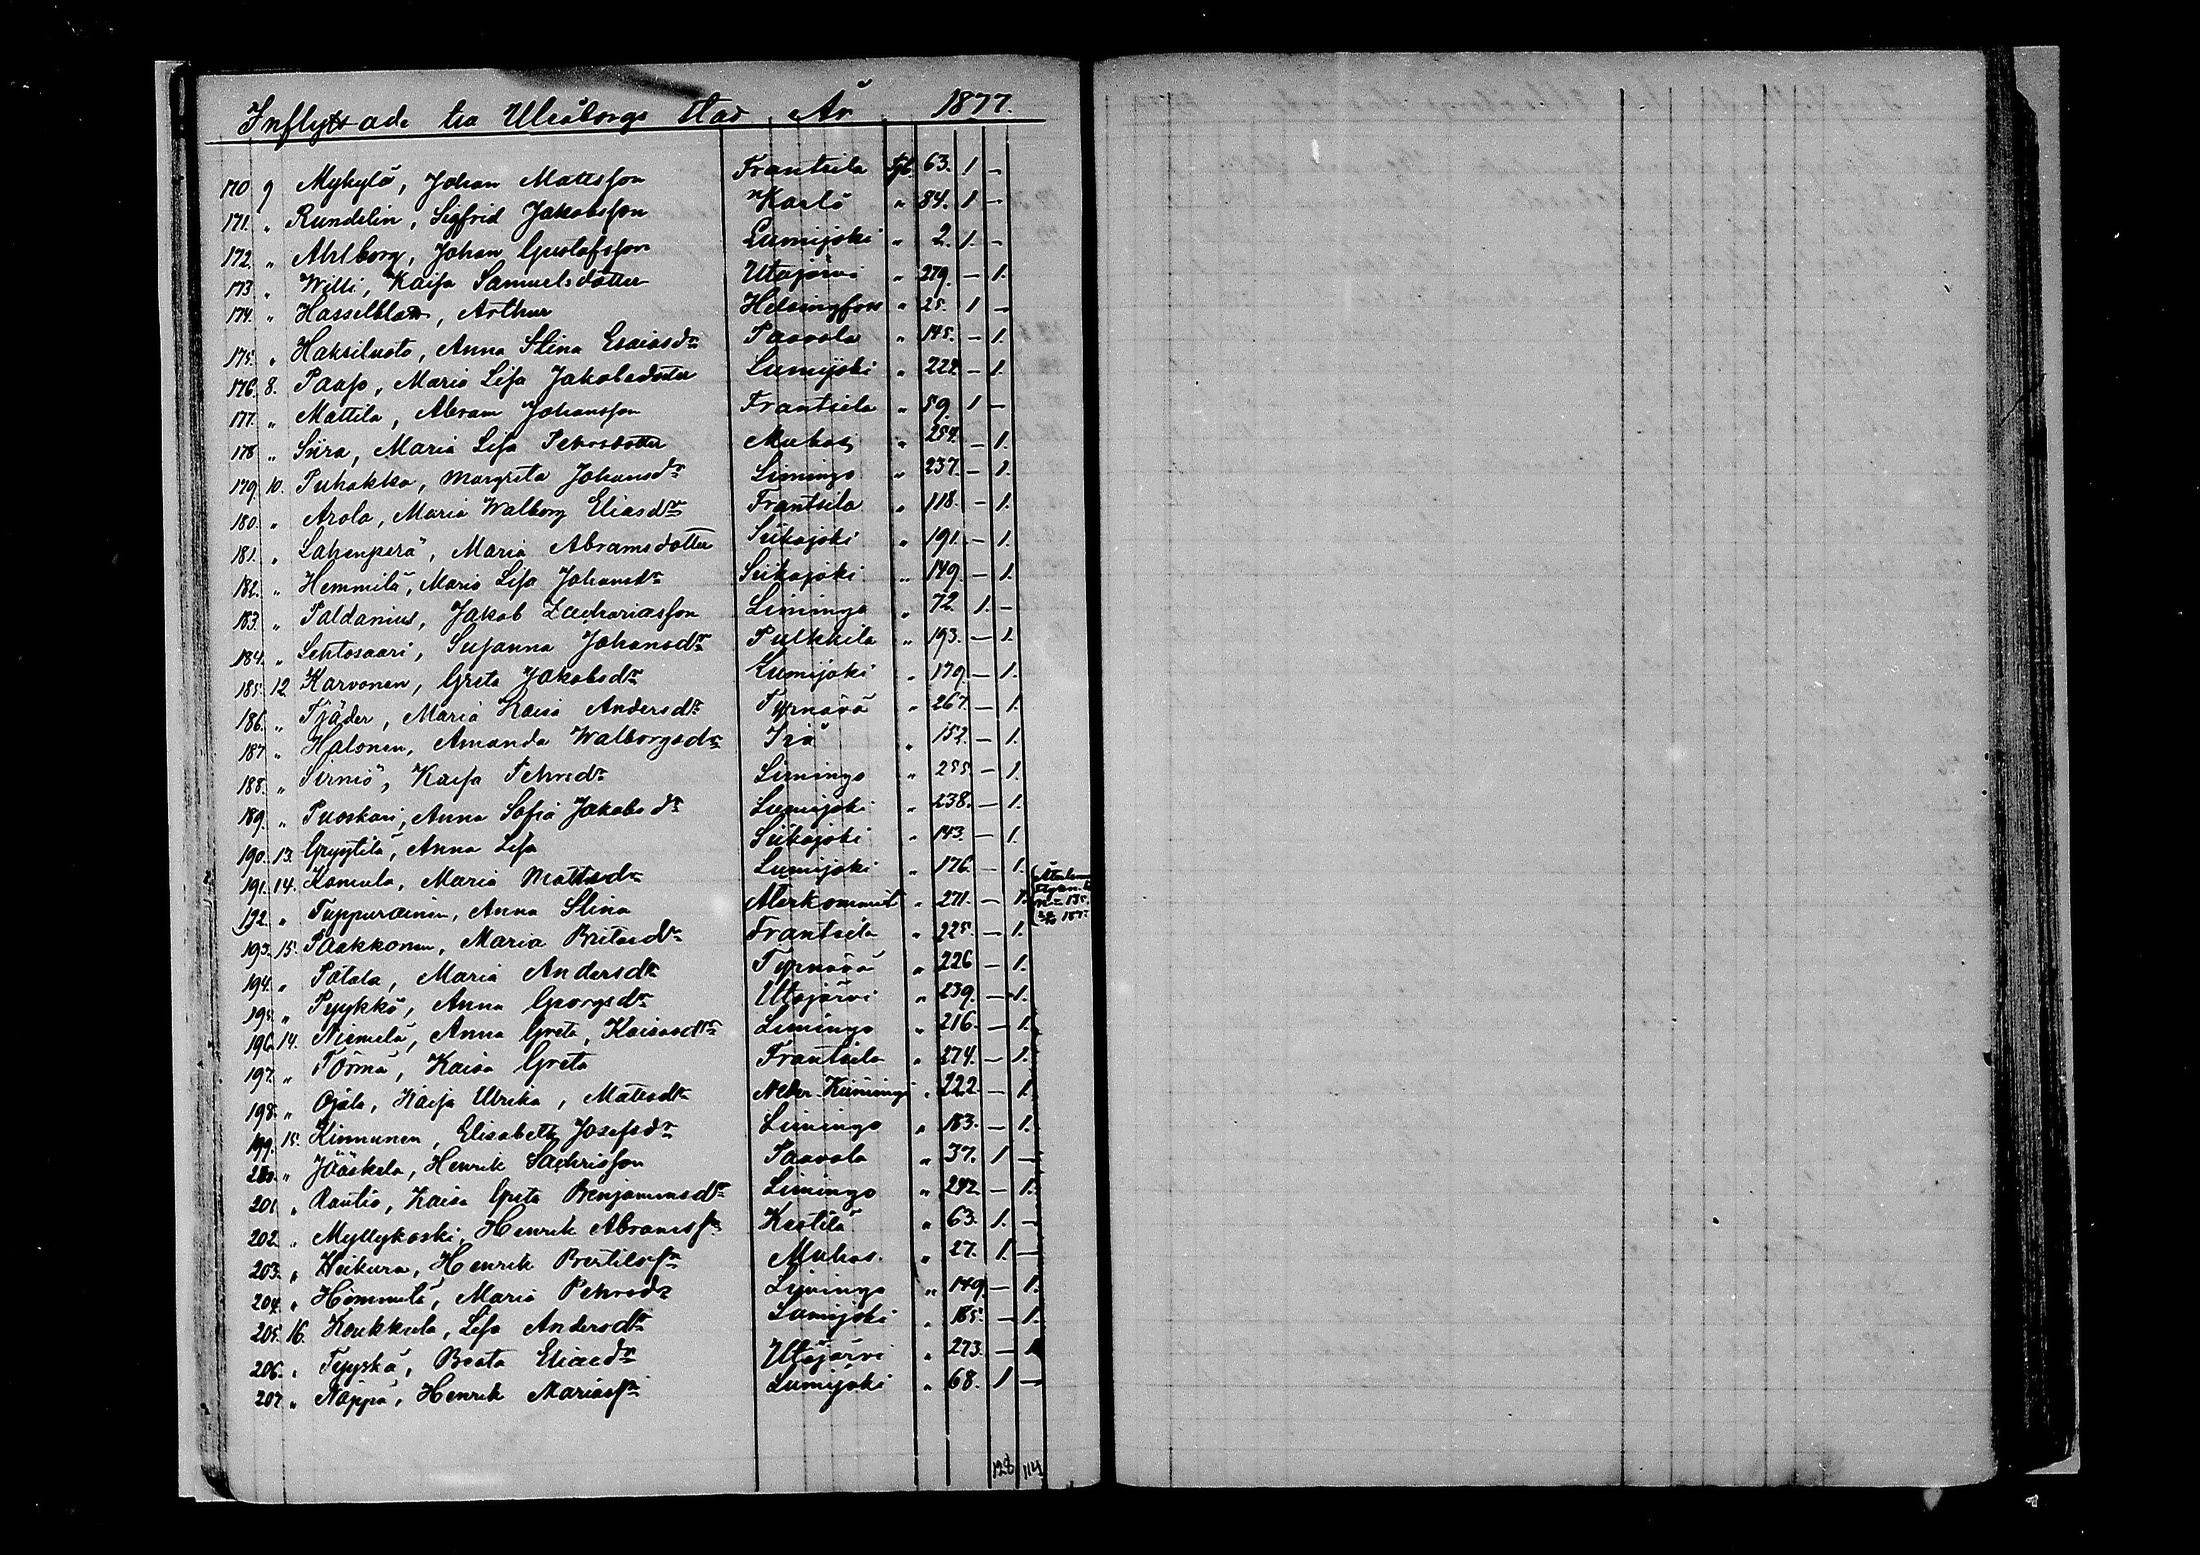 Inflyttade till Uleåborgs Stad År 1877.
170 9 Mykylä, Johan Mattsson Frantsila Tjl. 63. 1 –
171. „ Rundelin, Sigfrid Jakobsson Karlö „ 84. 1 –
172. „ Ahlborg, Johan Gustafsson Lumijoki „ 2. 1. –
173. „ Willi, Kaisa Samuelsdotter Utajärvi „ 279. – 1.
174. „ Hasselblad, Arthur Helsingfors „ 25. 1 –
175. „ Haksiluoto, Anna Stina Esaiasdr Paavola „ 145. – 1.
176. 8. Paaso, Maria Lisa Jakobsdotter Lumijoki „ 224. – 1.
177. „ Mattila, Abram Johansson Frantsila „ 59. 1 –
178 „ Siira, Maria Lisa Pehrsdotter Muhos „ 254. – 1.
179. 10. Puhakka, Margreta Johansdr Limingo „ 237. – 1.
180. „ Arola, Maria Walborg Eliasdr Frantsila „ 118. – 1.
181. „ Lahenperä, Maria Abramsdotter Siikajoki „ 191. – 1.
182. „ Hemmilä, Maria Lisa Johansdr Siikajoki „ 149. – 1.
183. „ Paldanius, Jakob Zachariasson Limingo „ 72. 1. –
184. „ Lehtosaari, Susanna Johansdr Pulkkila „ 193. – 1.
185. 12 Karvonen, Greta Jakobsdr Lumijoki „ 179. – 1.
186. „ Tjäder, Maria Kaisa Andersdr Tyrnävä „ 267. – 1.
187 „ Halonen, Amanda Walborgsdr Ijo „ 152. – 1.
188. „ Sirniö, Kaisa Pehrsdr Limingo „ 255. – 1.
189. „ Puoskari, Anna Sofia Jakobsdr Lumijoki „ 238. – 1.
190. 13. Gryytilä, Anna Lisa Siikajoki „ 143. – 1.
191. 14. Komula, Maria Mattsdr Lumijoki „ 176. – 1.
192. „ Tuppurainen, Anna Stina Återkommit „ 271. – 1. No 135.
193. 15. Paakkonen, Maria Britasdr Frantsila „ 225. – 1.
194. „ Patala, Maria Andersdr Tyrnävä „ 226 – 1.
195. „ Pyykkö, Anna Georgsdr Utajärvi „ 239. – 1.
196. 14. Niemelä, Anna Greta, Kaisasdr Limingo „ 216. – 1.
197. „ Törmä, Kaisa Greta Frantsila „ 274. – 1.
198. „ Ojala, Kaisa Ulrika, Matsdr Neder-Kiiminge „ 222. – 1.
199. 15. Kinnunen, Elisabeth Josefsdr Limingo „ 183. – 1.
200. „ Jääskelä, Henrik Sachrisson Paavola „ 37. 1 –
201. „ Rautio, Kaisa Greta Benjaminsdr Limingo „ 242 – 1.
202. „ Myllykoski, Henrik Abramss:n Kestilä „ 63. 1. –
203. „ Heikura, Henrik Bertilss:n Muhos. „ 27. 1. –
204. „ Hemmilä, Maria Pehrsdr Limingo „ 149. – 1.
205. 16. Koukkula, Lisa Andersdr Lumijoki „ 185. – 1.
206. „ Tyyskä, Beata Eliasdr Utajärvi „ 273. – 1
207. „ Näppä, Henrik Mariass:n Lumijoki „ 68. 1 –
128 114